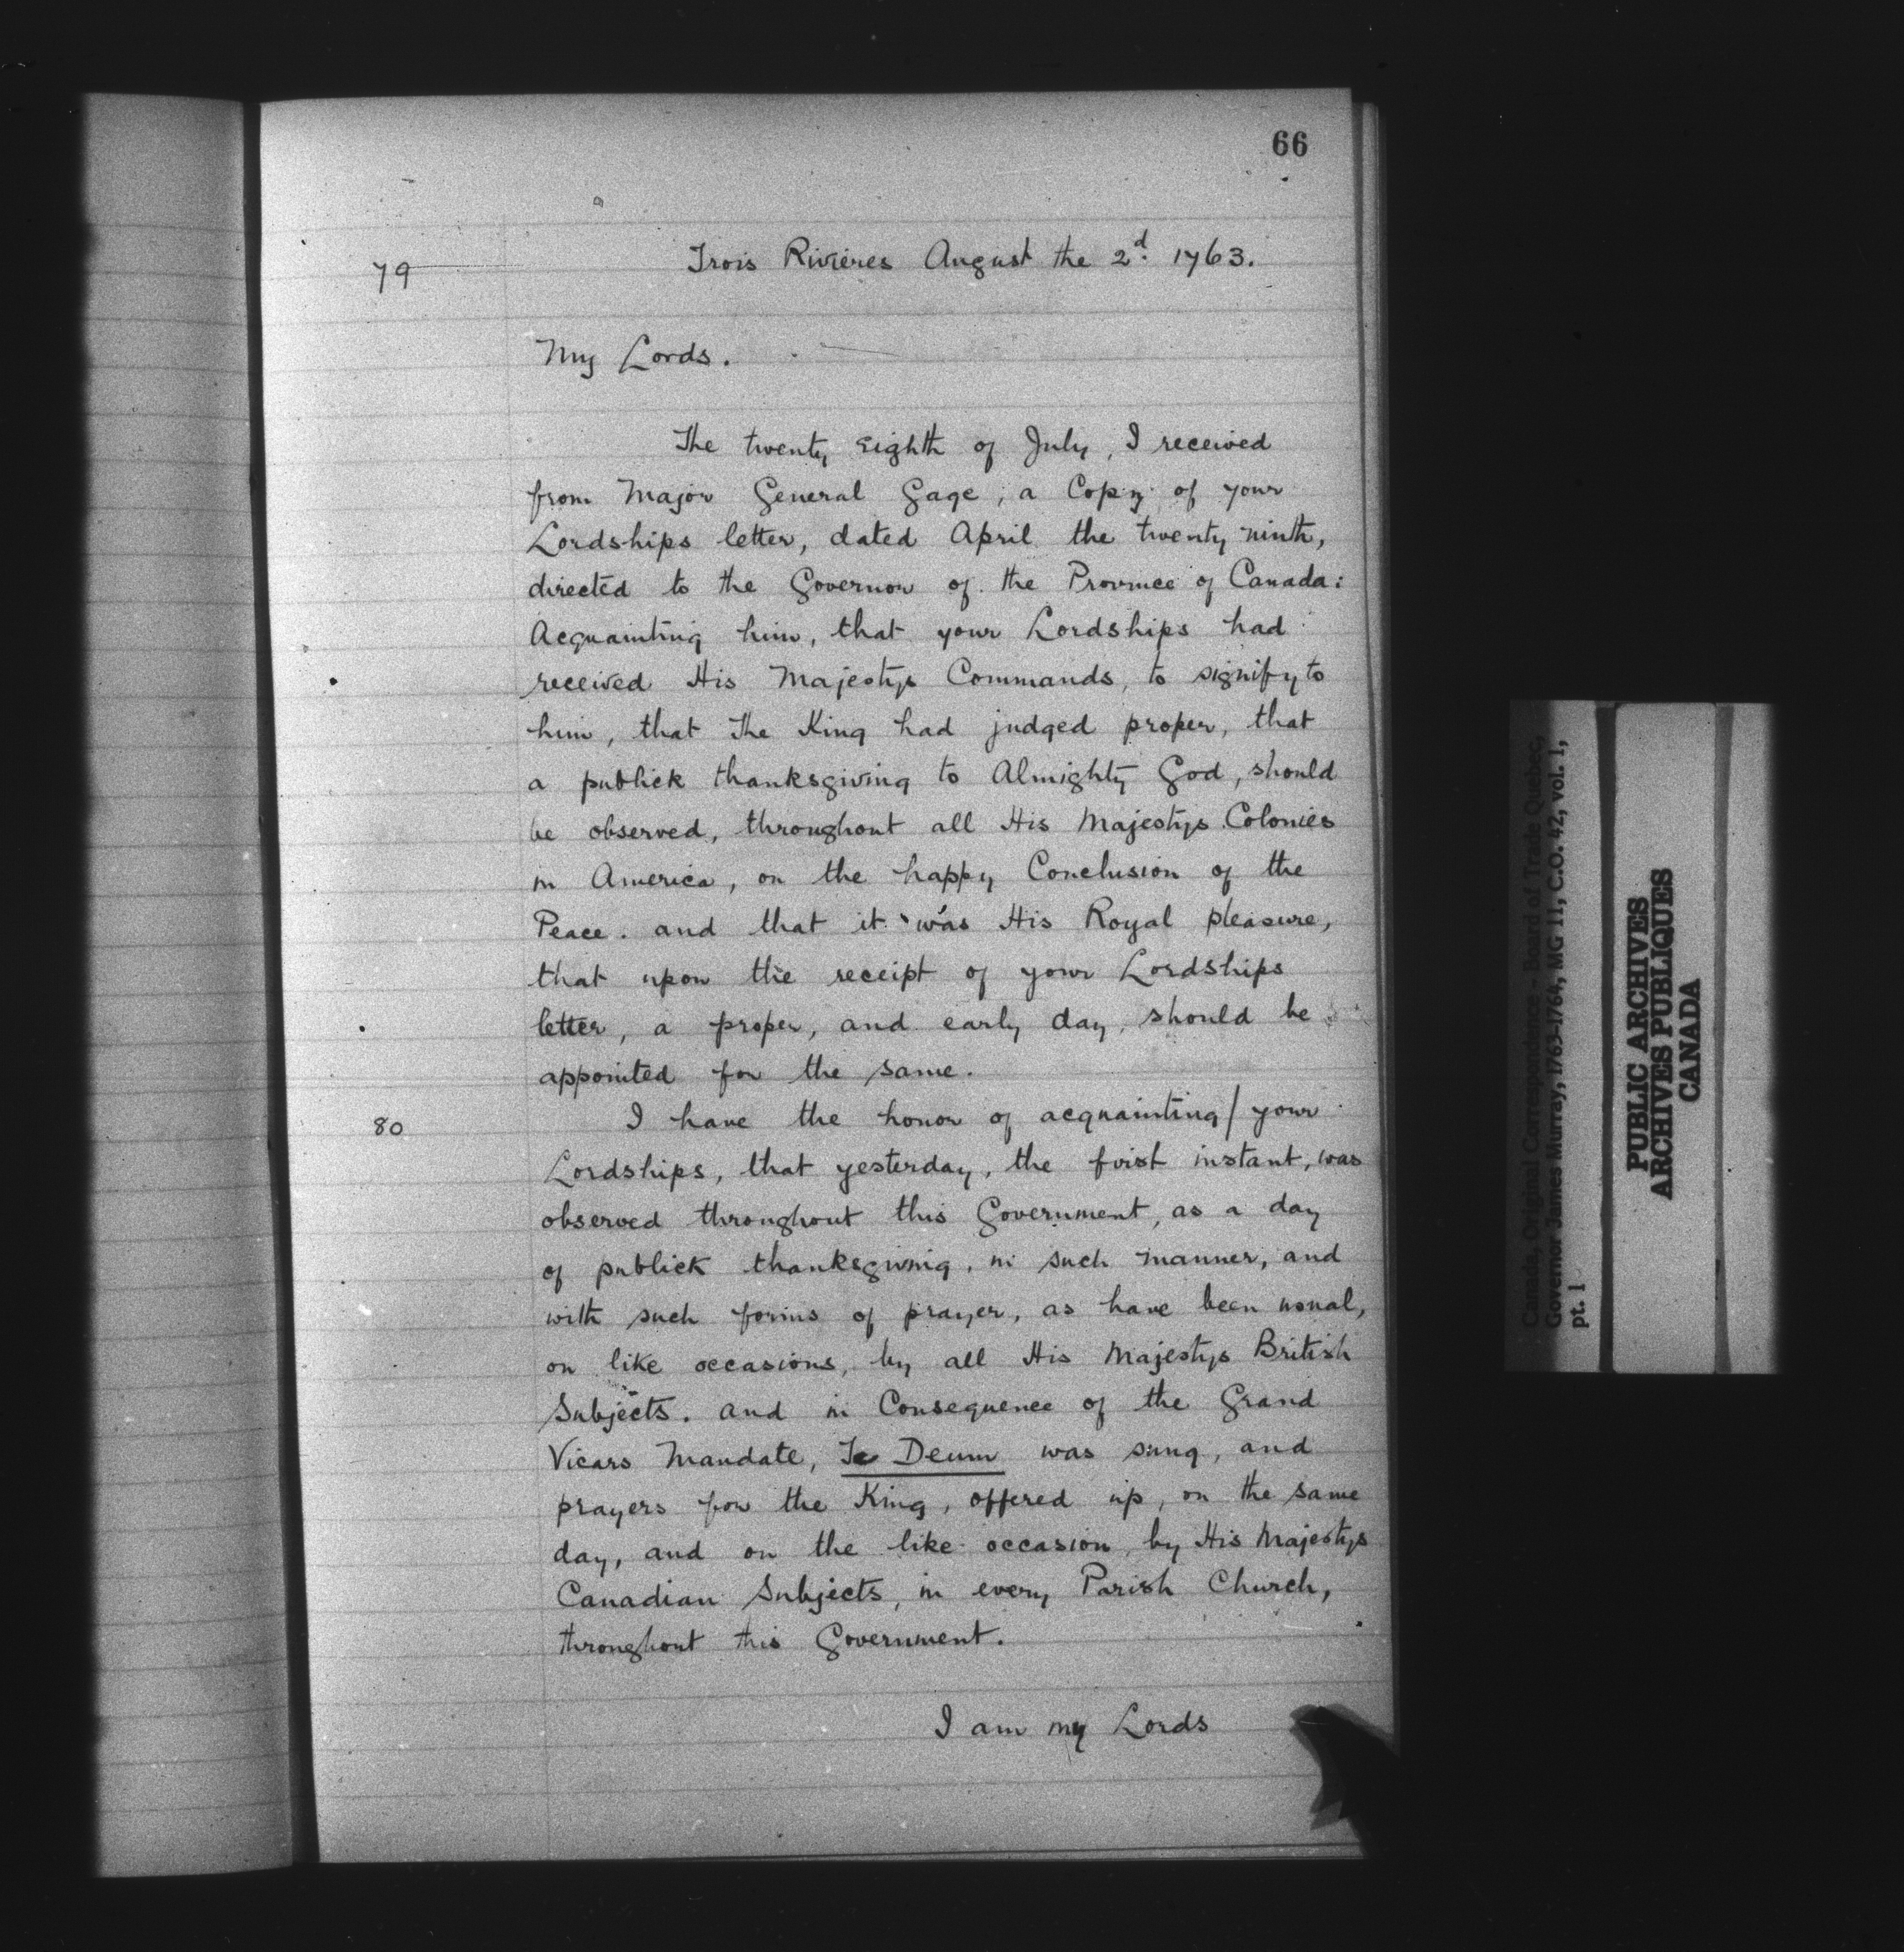 66
79
Trois Rivières August the 2d. 1763.
My Lords.
The twenty eighth of July, I received
from Major General Gage, a Copy of your
Lordships letter, dated April the twenty ninth,
directed to the Governor of the Province of Canada:
Acquainting him, that your Lordships had
received His Majestys Commands, to signify to
him, that The King had judged proper, that
a publick thanksgiving to Almighty God, should
be observed, throughout all His Majestys Colonies
in America, on the happy Conclusion of the
Peace. and that it was His Royal pleasure,
that upon the receipt of your Lordships
letter, a proper, and early day, should be
appointed for the same.
80
I have the honor of acquainting/ your
Lordships, that yesterday, the first instant, was
observed throughout this Government, as a day
of publick thanksgiving, in such manner, and
with such forms of prayer, as have been usual,
on like occasions, by all His Majestys British
Subjects. and in Consequence of the Grand
Vicars Mandate, Te Deum was sung, and
prayers for the King, offered up, on the same
day, and on the like occasion, by His Majestys
Canadian Subjects, in every Parish Church,
throughout this Government.
I am my Lords
Canada, Original Correspondence - Board of Trade Quebec,
Governor James Murray, 1763-1764, MG 11, C.O. 42, vol. 1,
pt. 1
PUBLIC ARCHIVES
ARCHIVES PUBLIQUES
CANADA